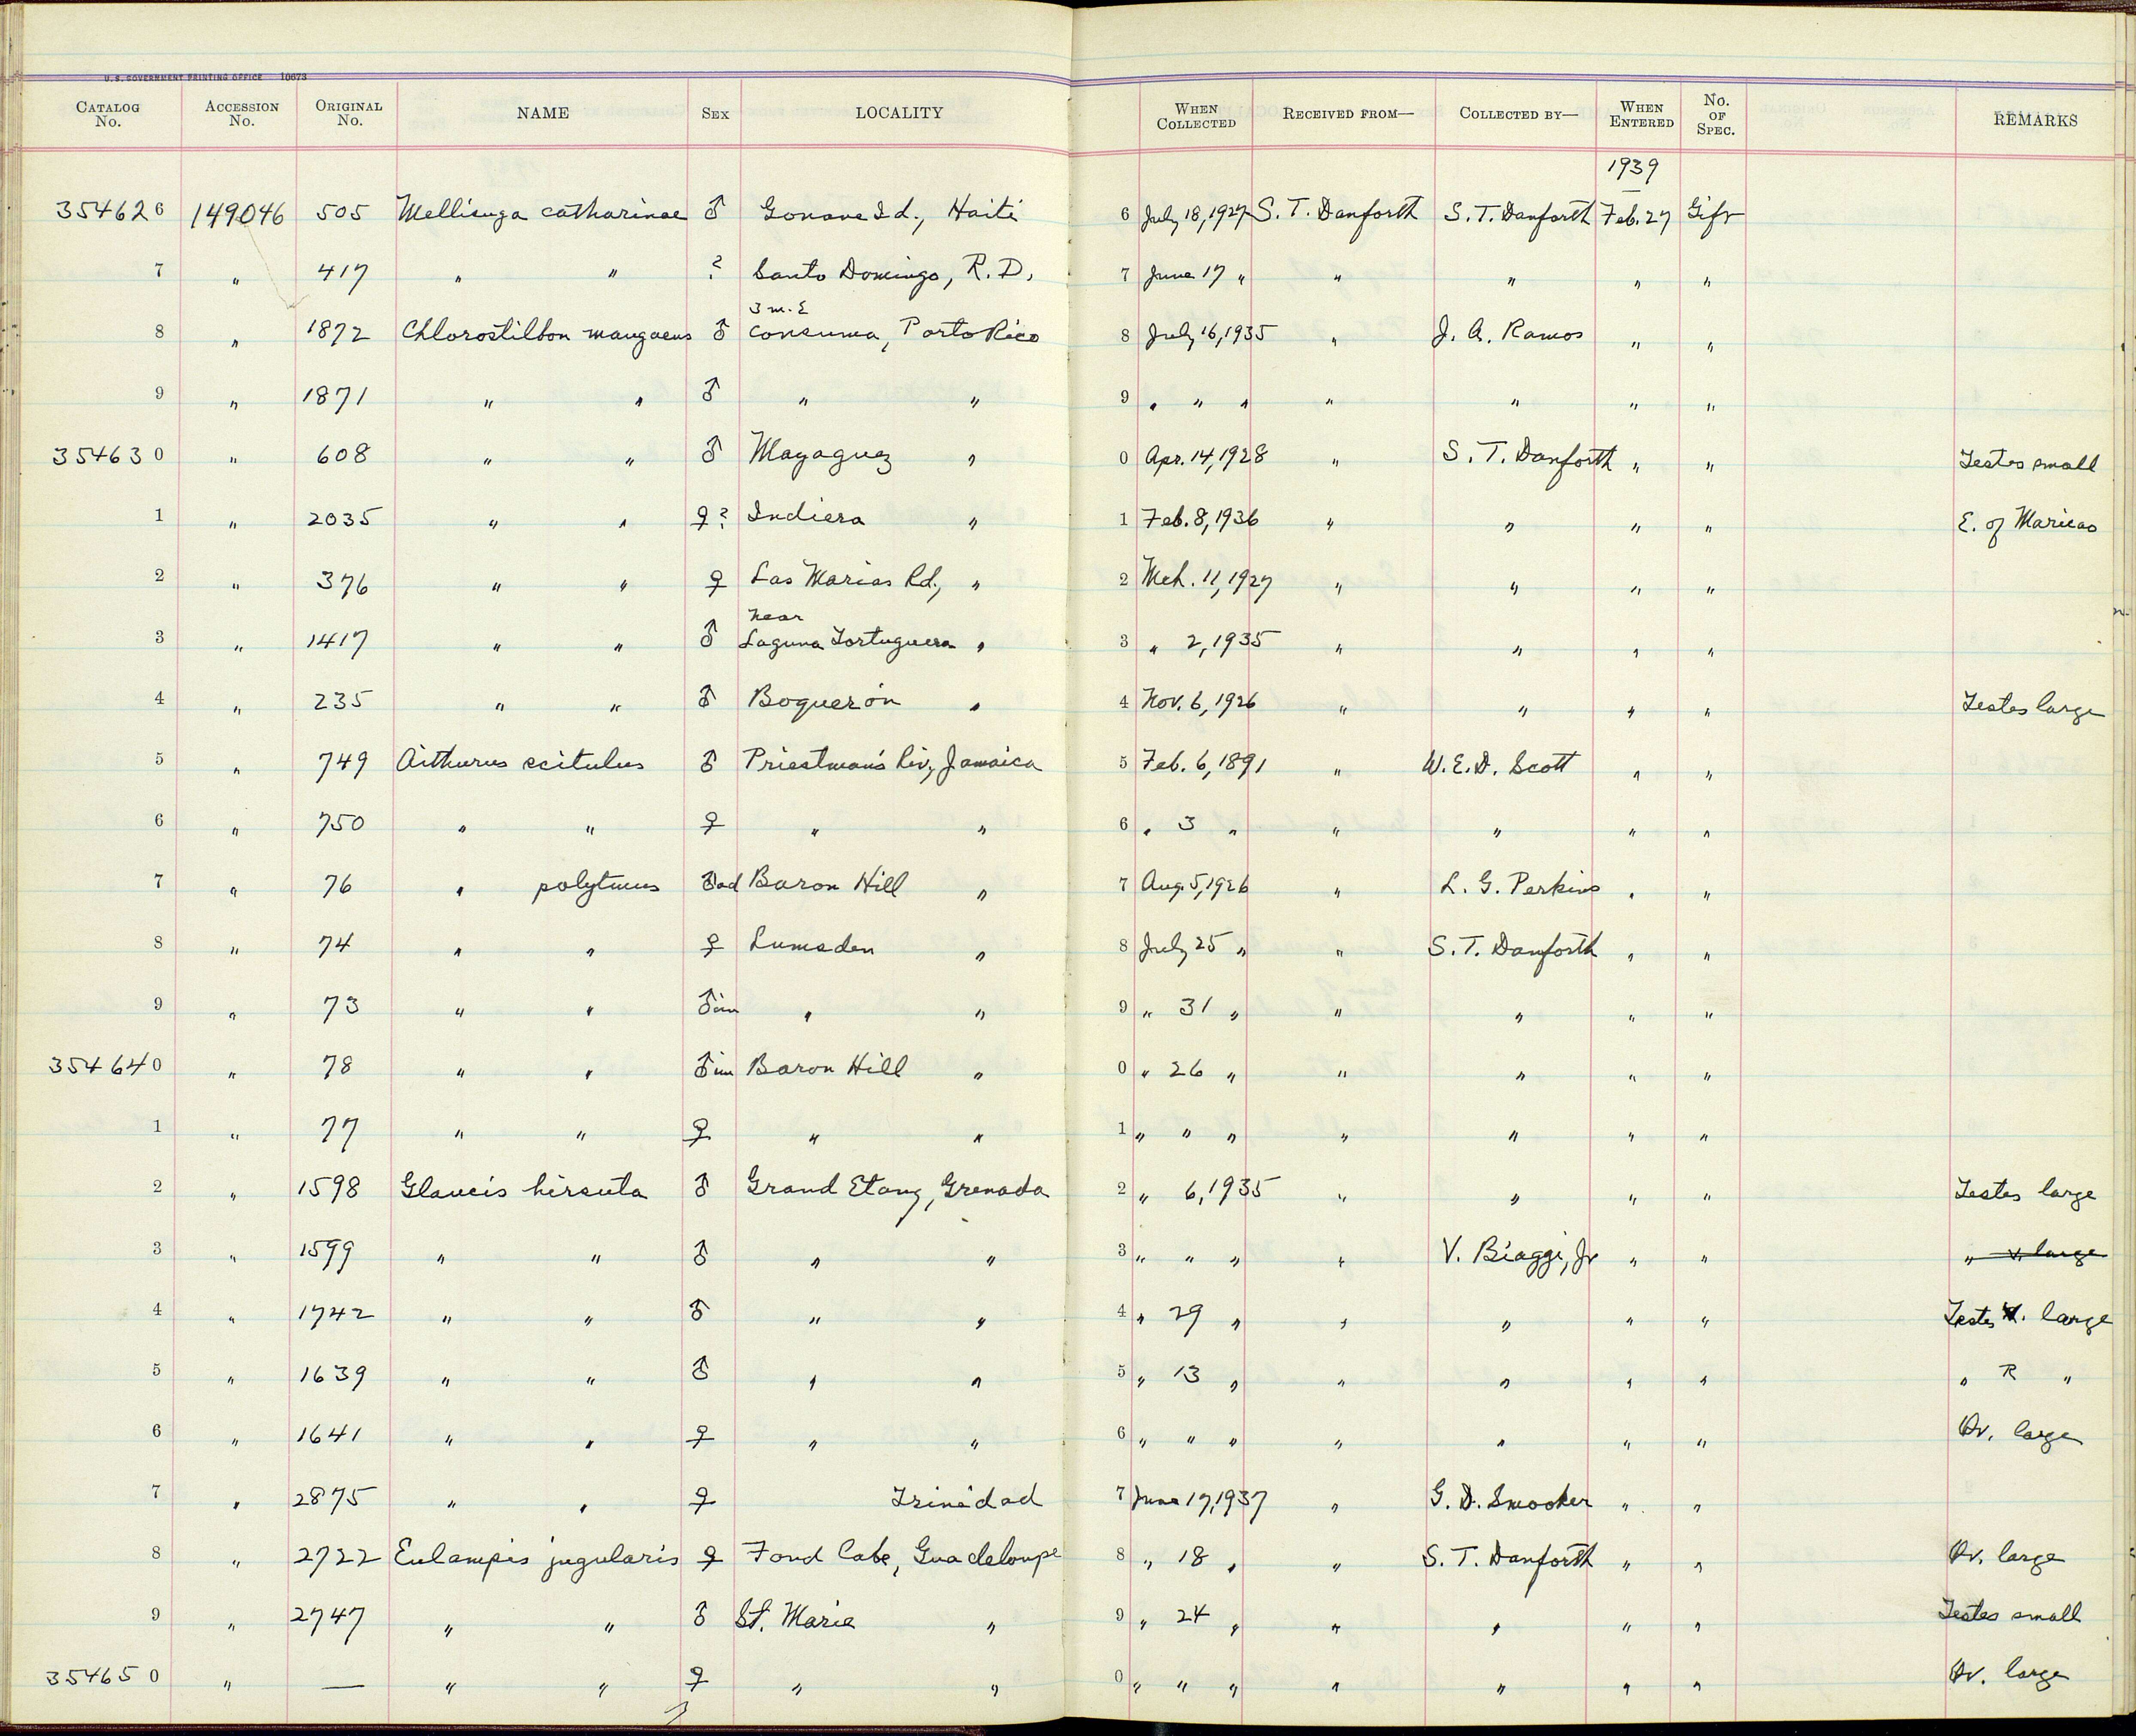 U.S. GOVERNMENT PRINTING OFFICE 10673
CATALOG No. ACCESSION No. ORIGINAL No. NAME SEX LOCALITY WHEN COLLECTED RECEIVED FROM— COLLECTED BY— WHEN ENTERED No. OF SPEC. REMARKS
1939
354626 149046 505 Mellisuga catharinae ♂ Gonave Id., Haiti 6 July 18, 1927 S. T. Danforth S. T. Danforth Feb. 27 Gift
7 " 417 " " ? Santo Domingo, R. D. 7 June 17 " " " " "
3 m. E
8 " 1872 Chlorostilbon maugaeus ♂ Consuma, Porto Rico 8 July 16, 1935 " J. A. Ramos " "
9 " 1871 " " ♂ " " 9 " " " " " " "
354630 " 608 " " ♂ Mayaguez " 0 Apr. 14, 1928 " S. T. Danforth " " Testes small
1 " 2035 " " ♀? Indiera " 1 Feb. 8, 1936 " " " " E. of Maricao
2 " 376 " " ♀ Las Marias Rd., " 2 Mch. 11, 1927 " " " "
near
3 " 1417 " " ♂ Laguna Tortuguera " 3 " 2, 1935 " " " "
4 " 235 " " ♂ Boquerón " 4 Nov. 6, 1926 " " " " Testes large
5 " 749 Aithurus scitulus ♂ Priestman's Riv., Jamaica 5 Feb. 6, 1891 " W. E. D. Scott " "
6 " 750 " " ♀ " " 6 " 3 " " " " "
7 " 76 " polytmus ♂ad Baron Hill " 7 Aug. 5, 1926 " L. G. Perkins " "
8 " 74 " " ♀ Lumsden " 8 July 25 " " S. T. Danforth " "
9 " 73 " " ♂im " " 9 " 31 " " " " "
354640 " 78 " " ♂im Baron Hill " 0 " 26 " " " " "
1 " 77 " " ♀ " " 1 " " " " " " "
2 " 1598 Glaucis hirsuta ♂ Grand Etang, Grenada 2 " 6, 1935 " " " " Testes large
3 " 1599 " " ♂ " " 3 " " " " V. Biaggi, Jr " " " v. large
4 " 1742 " " ♂ " " 4 " 29 " " " " " Testes . large
5 " 1639 " " ♂ " " 5 " 13 " " " " " " R "
6 " 1641 " " ♀ " " 6 " " " " " " " Ov. large
7 " 2875 " " ♀ Trinidad 7 June 17, 1937 " G. D. Smooker " "
8 " 2722 Eulampis jugularis ♀ Fond Cabe, Guadeloupe 8 " 18 " " S. T. Danforth " " Ov. large
9 " 2747 " " ♂ St. Marie " 9 " 24 " " " " " Testes small
354650 " — " " ♀ " " 0 " " " " " " " Ov. large